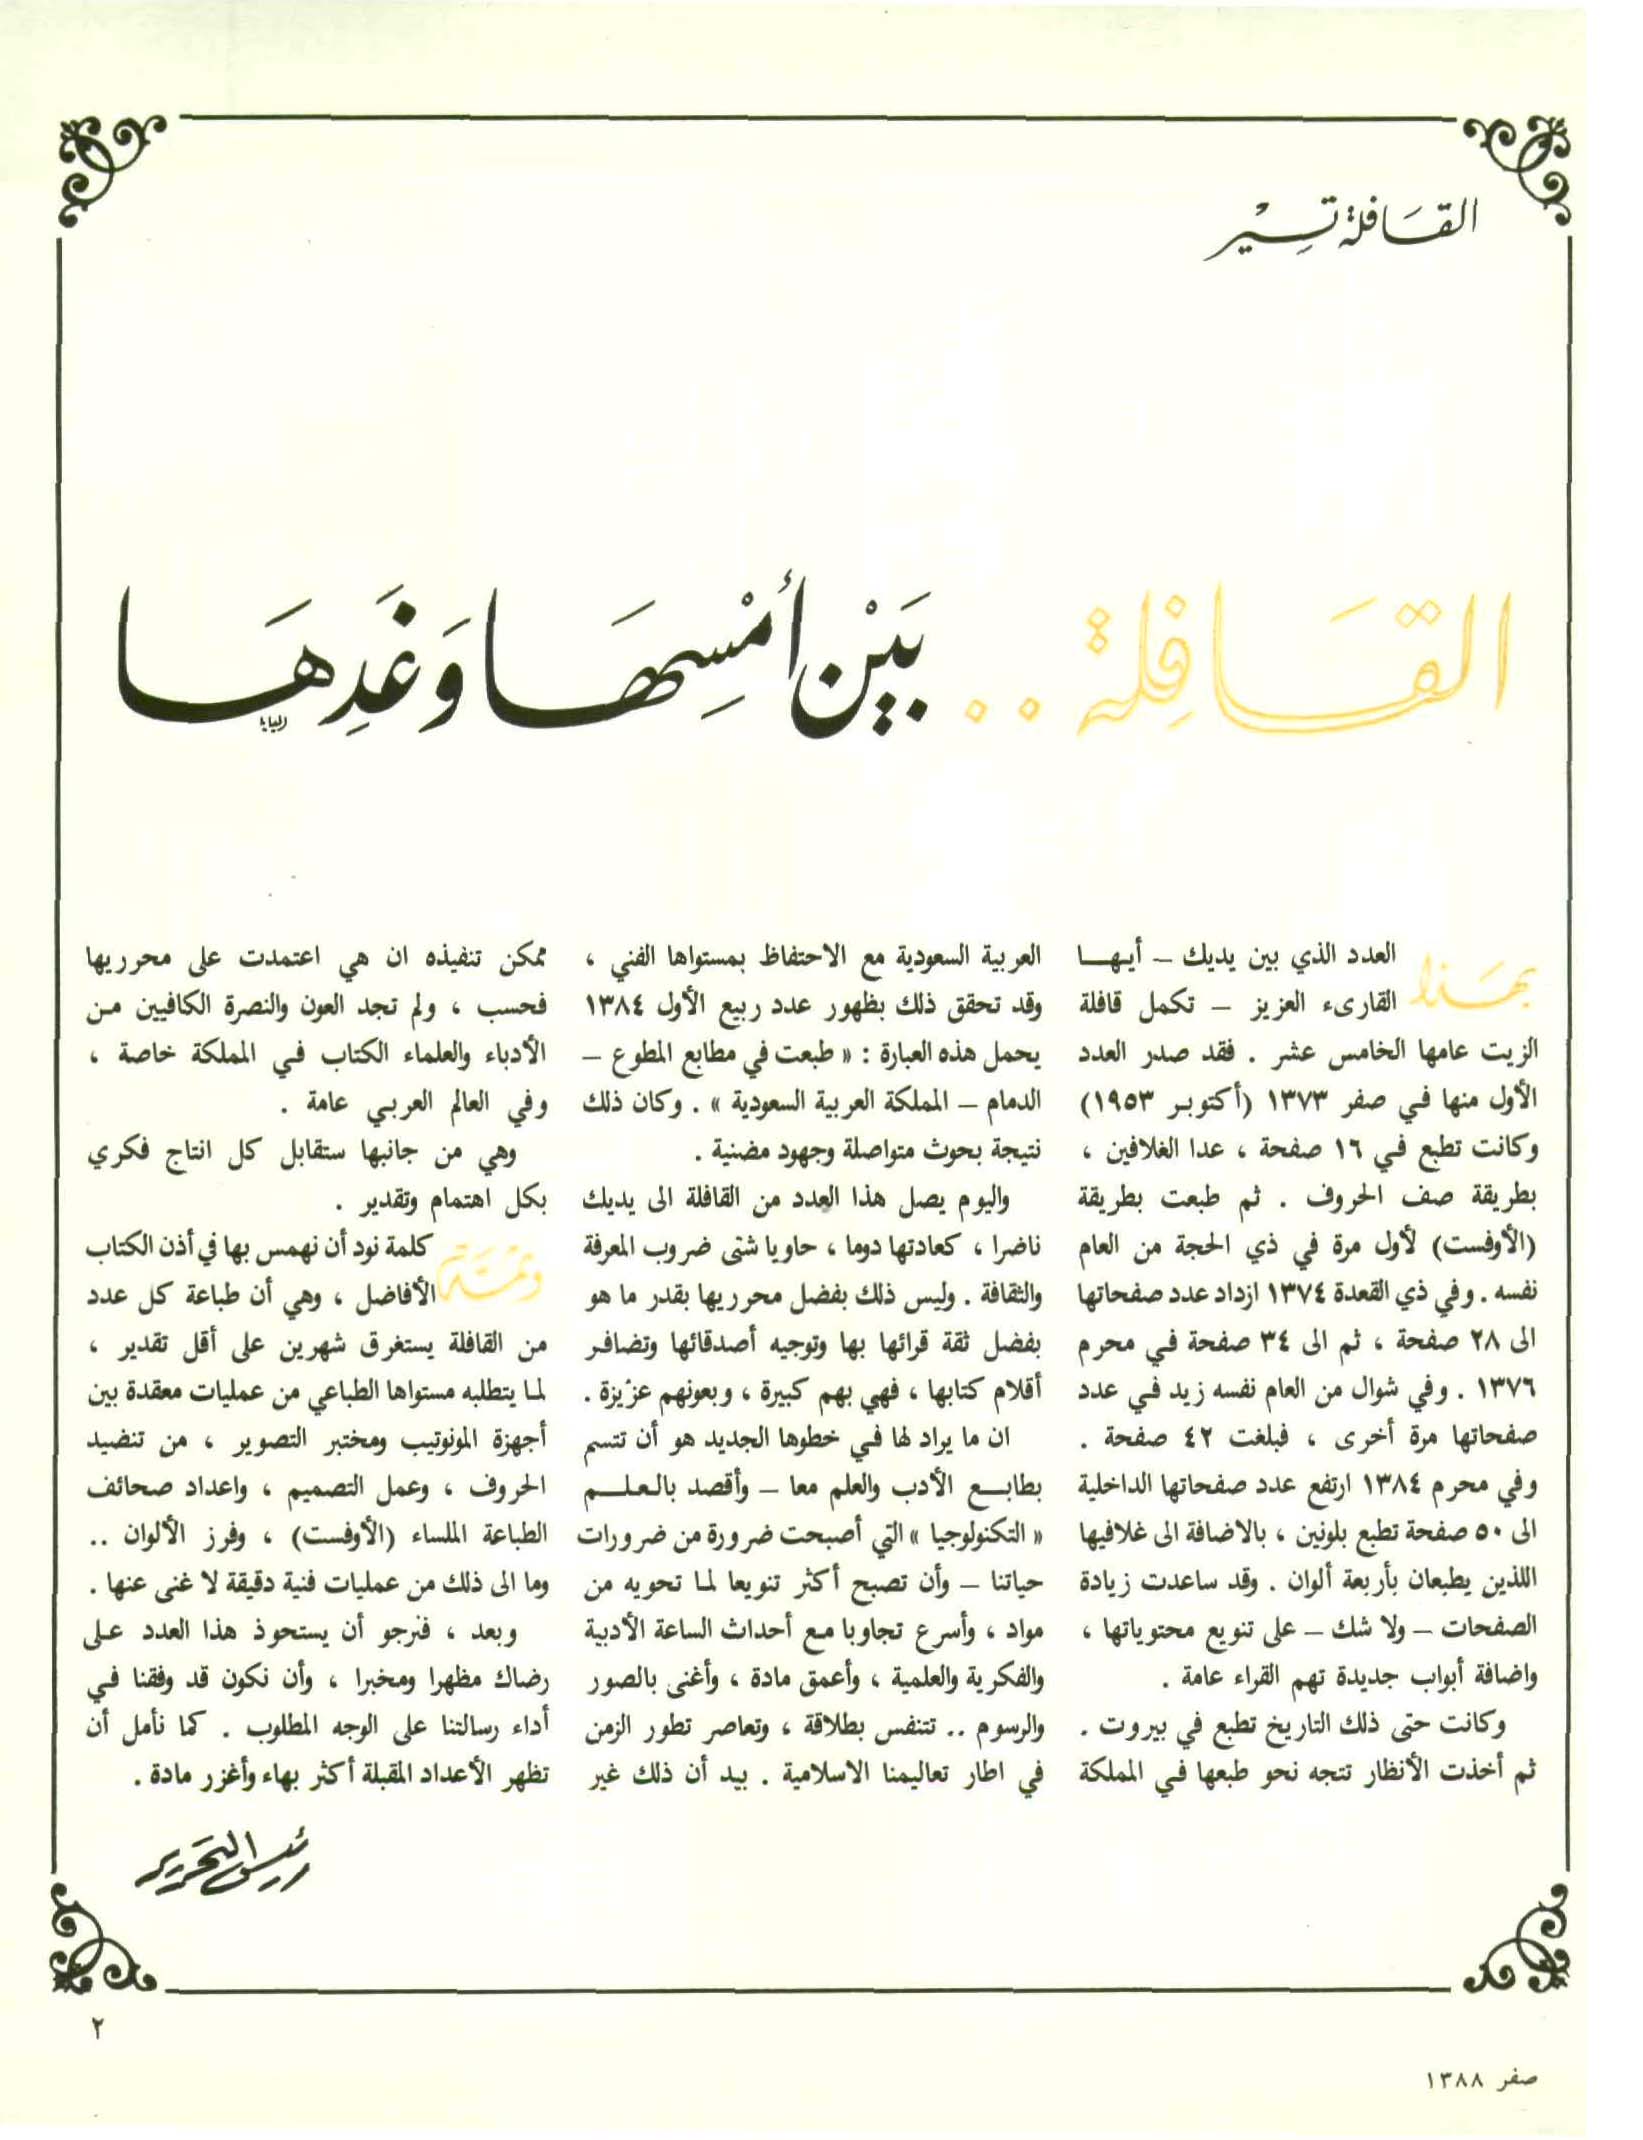 القافلة تسير
القافلة .. بين أمسها وغدها
بهذا العدد الذي بين يديك – أيها
القارىء العزيز – تكمل قافلة
الزيت عامها الخامس عشر . فقد صدر العدد
الأول منها في صفر ١٣٧٣ (أكتوبر ١٩٥٣)
وكانت تطبع في ١٦ صفحة ، عدا الغلافين ،
بطريقة صف الحروف . ثم طبعت بطريقة
(الأوفست) لأول مرة في ذي الحجة من العام
نفسه . وفي ذي القعدة ١٣٧٤ ازداد عدد صفحاتها
الى ٢٨ صفحة ، ثم الى ٣٤ صفحة في محرم
١٣٧٦ . وفي شوال من العام نفسه زيد في عدد
صفحاتها مرة أخرى ، فبلغت ٤٢ صفحة .
وفي محرم ١٣٨٤ ارتفع عدد صفحاتها الداخلية
الى ٥٠ صفحة تطبع بلونين ، بالاضافة الى غلافيها
اللذين يطبعان بأربعة ألوان . وقد ساعدت زيادة
الصفحات – ولا شك – على تنويع محتوياتها ،
واضافة أبواب جديدة تهم القراء عامة .
وكانت حتى ذلك التاريخ تطبع في بيروت .
ثم أخذت الأنظار تتجه نحو طبعها في المملكة
العربية السعودية مع الاحتفاظ بمستواها الفني ،
وقد تحقق ذلك بظهور عدد ربيع الأول ١٣٨٤
يحمل هذه العبارة : « طبعت في مطابع المطوع –
الدمام – المملكة العربية السعودية » . وكان ذلك
نتيجة بحوث متواصلة وجهود مضنية .
واليوم يصل هذا العدد من القافلة الى يديك
ناضرا ، كعادتها دوما ، حاويا شتى ضروب المعرفة
والثقافة . وليس ذلك بفضل محرريها بقدر ما هو
بفضل ثقة قرائها بها وتوجيه أصدقائها وتضافر
أقلام كتابها ، فهي بهم كبيرة ، وبعونهم عزيزة .
ان ما يراد لها في خطوها الجديد هو أن تتسم
بطابع الأدب والعلم معا – وأقصد بالعلم
« التكنولوجيا » التي أصبحت ضرورة من ضرورات
حياتنا – وأن تصبح أكثر تنويعا لما تحويه من
مواد ، وأسرع تجاوبا مع أحداث الساعة الأدبية
والفكرية والعلمية ، وأعمق مادة ، وأغنى بالصور
والرسوم .. تتنفس بطلاقة ، وتعاصر تطور الزمن
في اطار تعاليمنا الاسلامية . بيد أن ذلك غير
ممكن تنفيذه ان هي اعتمدت على محرريها
فحسب ، ولم تجد العون والنصرة الكافيين من
الأدباء والعلماء الكتاب في المملكة خاصة ،
وفي العالم العربي عامة .
وهي من جانبها ستقابل كل انتاج فكري
بكل اهتمام وتقدير .
وثمة كلمة نود أن نهمس بها في أذن الكتاب
الأفاضل ، وهي أن طباعة كل عدد
من القافلة يستغرق شهرين على أقل تقدير ،
لما يتطلبه مستواها الطباعي من عمليات معقدة بين
أجهزة المونوتيب ومختبر التصوير ، من تنضيد
الحروف ، وعمل التصميم ، واعداد صحائف
الطباعة الملساء (الأوفست) ، وفرز الألوان ..
وما الى ذلك من عمليات فنية دقيقة لا غنى عنها .
وبعد ، فنرجو أن يستحوذ هذا العدد على
رضاك مظهرا ومخبرا ، وأن نكون قد وفقنا في
أداء رسالتنا على الوجه المطلوب . كما نأمل أن
تظهر الأعداد المقبلة أكثر بهاء وأغزر مادة .
رئيس التحرير
٢
صفر ١٣٨٨